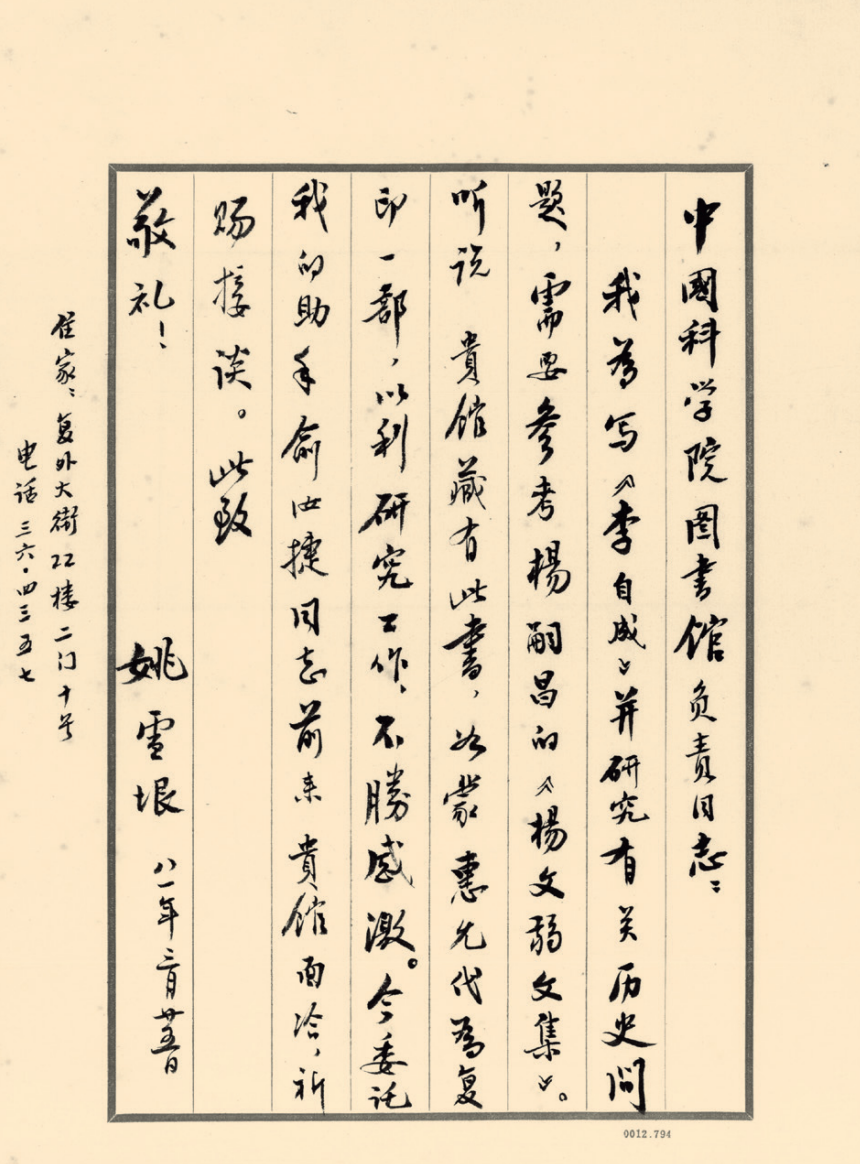 中國科学院图書馆负责同志：
我為写《李自成》并研究有关历史問
题，需要参考楊嗣昌的《楊文弱文集》。
听说　貴馆藏有此書，如蒙惠允代為复
印一部，以利研究工作，不勝感激。今委託
我的助手俞汝捷同志前来貴馆面洽，祈
赐接谈。此致
敬礼！
姚雪垠 八一年三月廿五日
住家：复外大街22楼二门十号
电话 三六·四三五七
0012.794